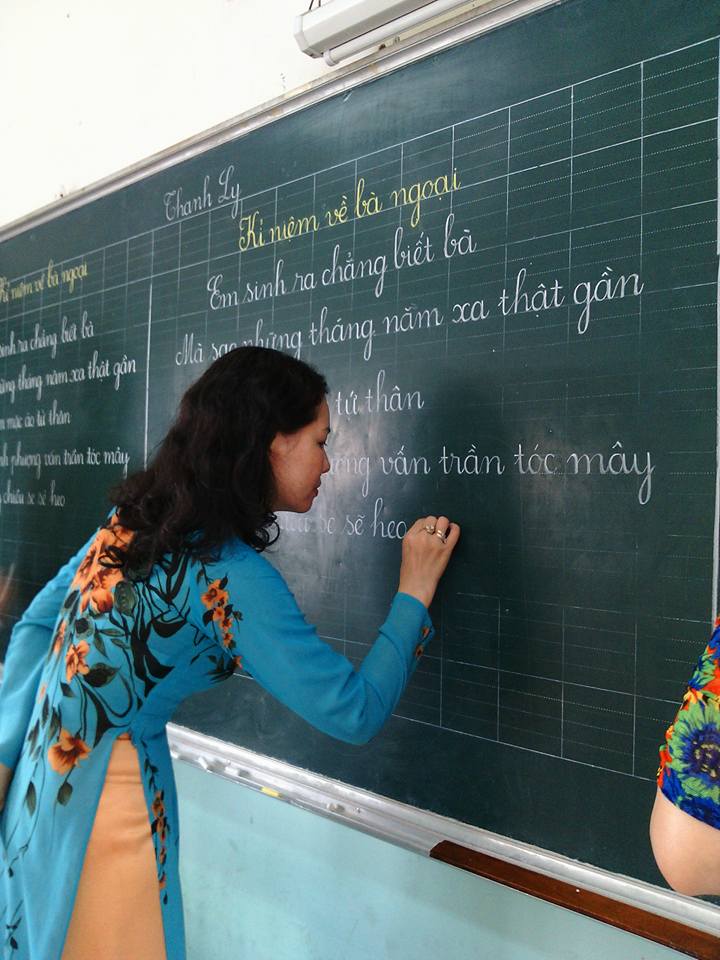 Thanh Ly
Kỉ niệm về bà ngoại
sinh ra chẳng biết bà
tháng năm xa thật gần
mặc áo tứ thân
phượng vấn trần tóc mây
chiều se sẽ heo
Kỉ niệm về bà ngoại
Em sinh ra chẳng biết bà
Mà sao những tháng năm xa thật gần
tứ thân
vấn trần tóc mây
se sẽ heo